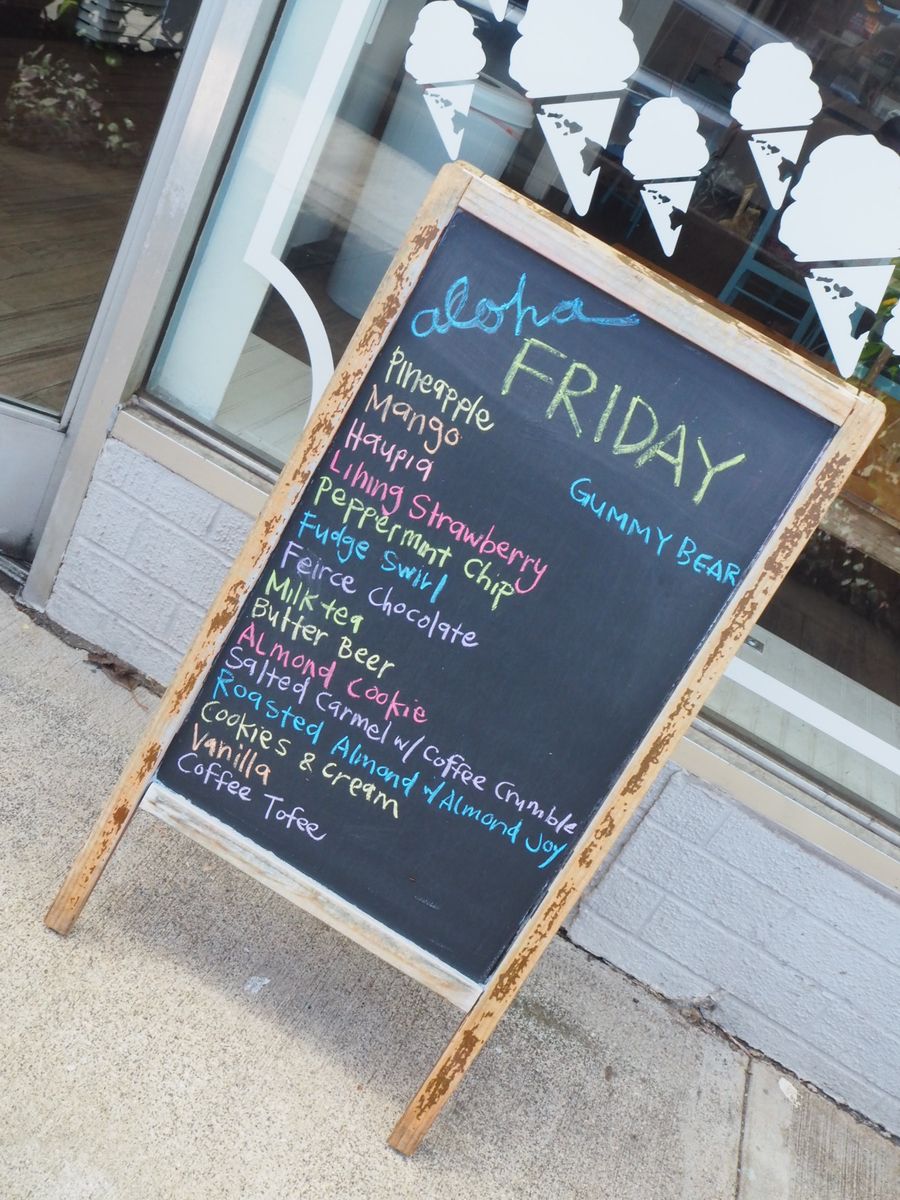 aloha
FRIDAY
Pineapple
Mango
Haupia
Lihing Strawberry
Peppermint Chip
Fudge Swirl
Feirce Chocolate
Milk tea
Butter Beer
Almond Cookie
Salted Carmel w/ Coffee Crumble
Roasted Almond w/ Almond Joy
Cookies & Cream
Vanilla
Coffee Tofee
Gummy Bear